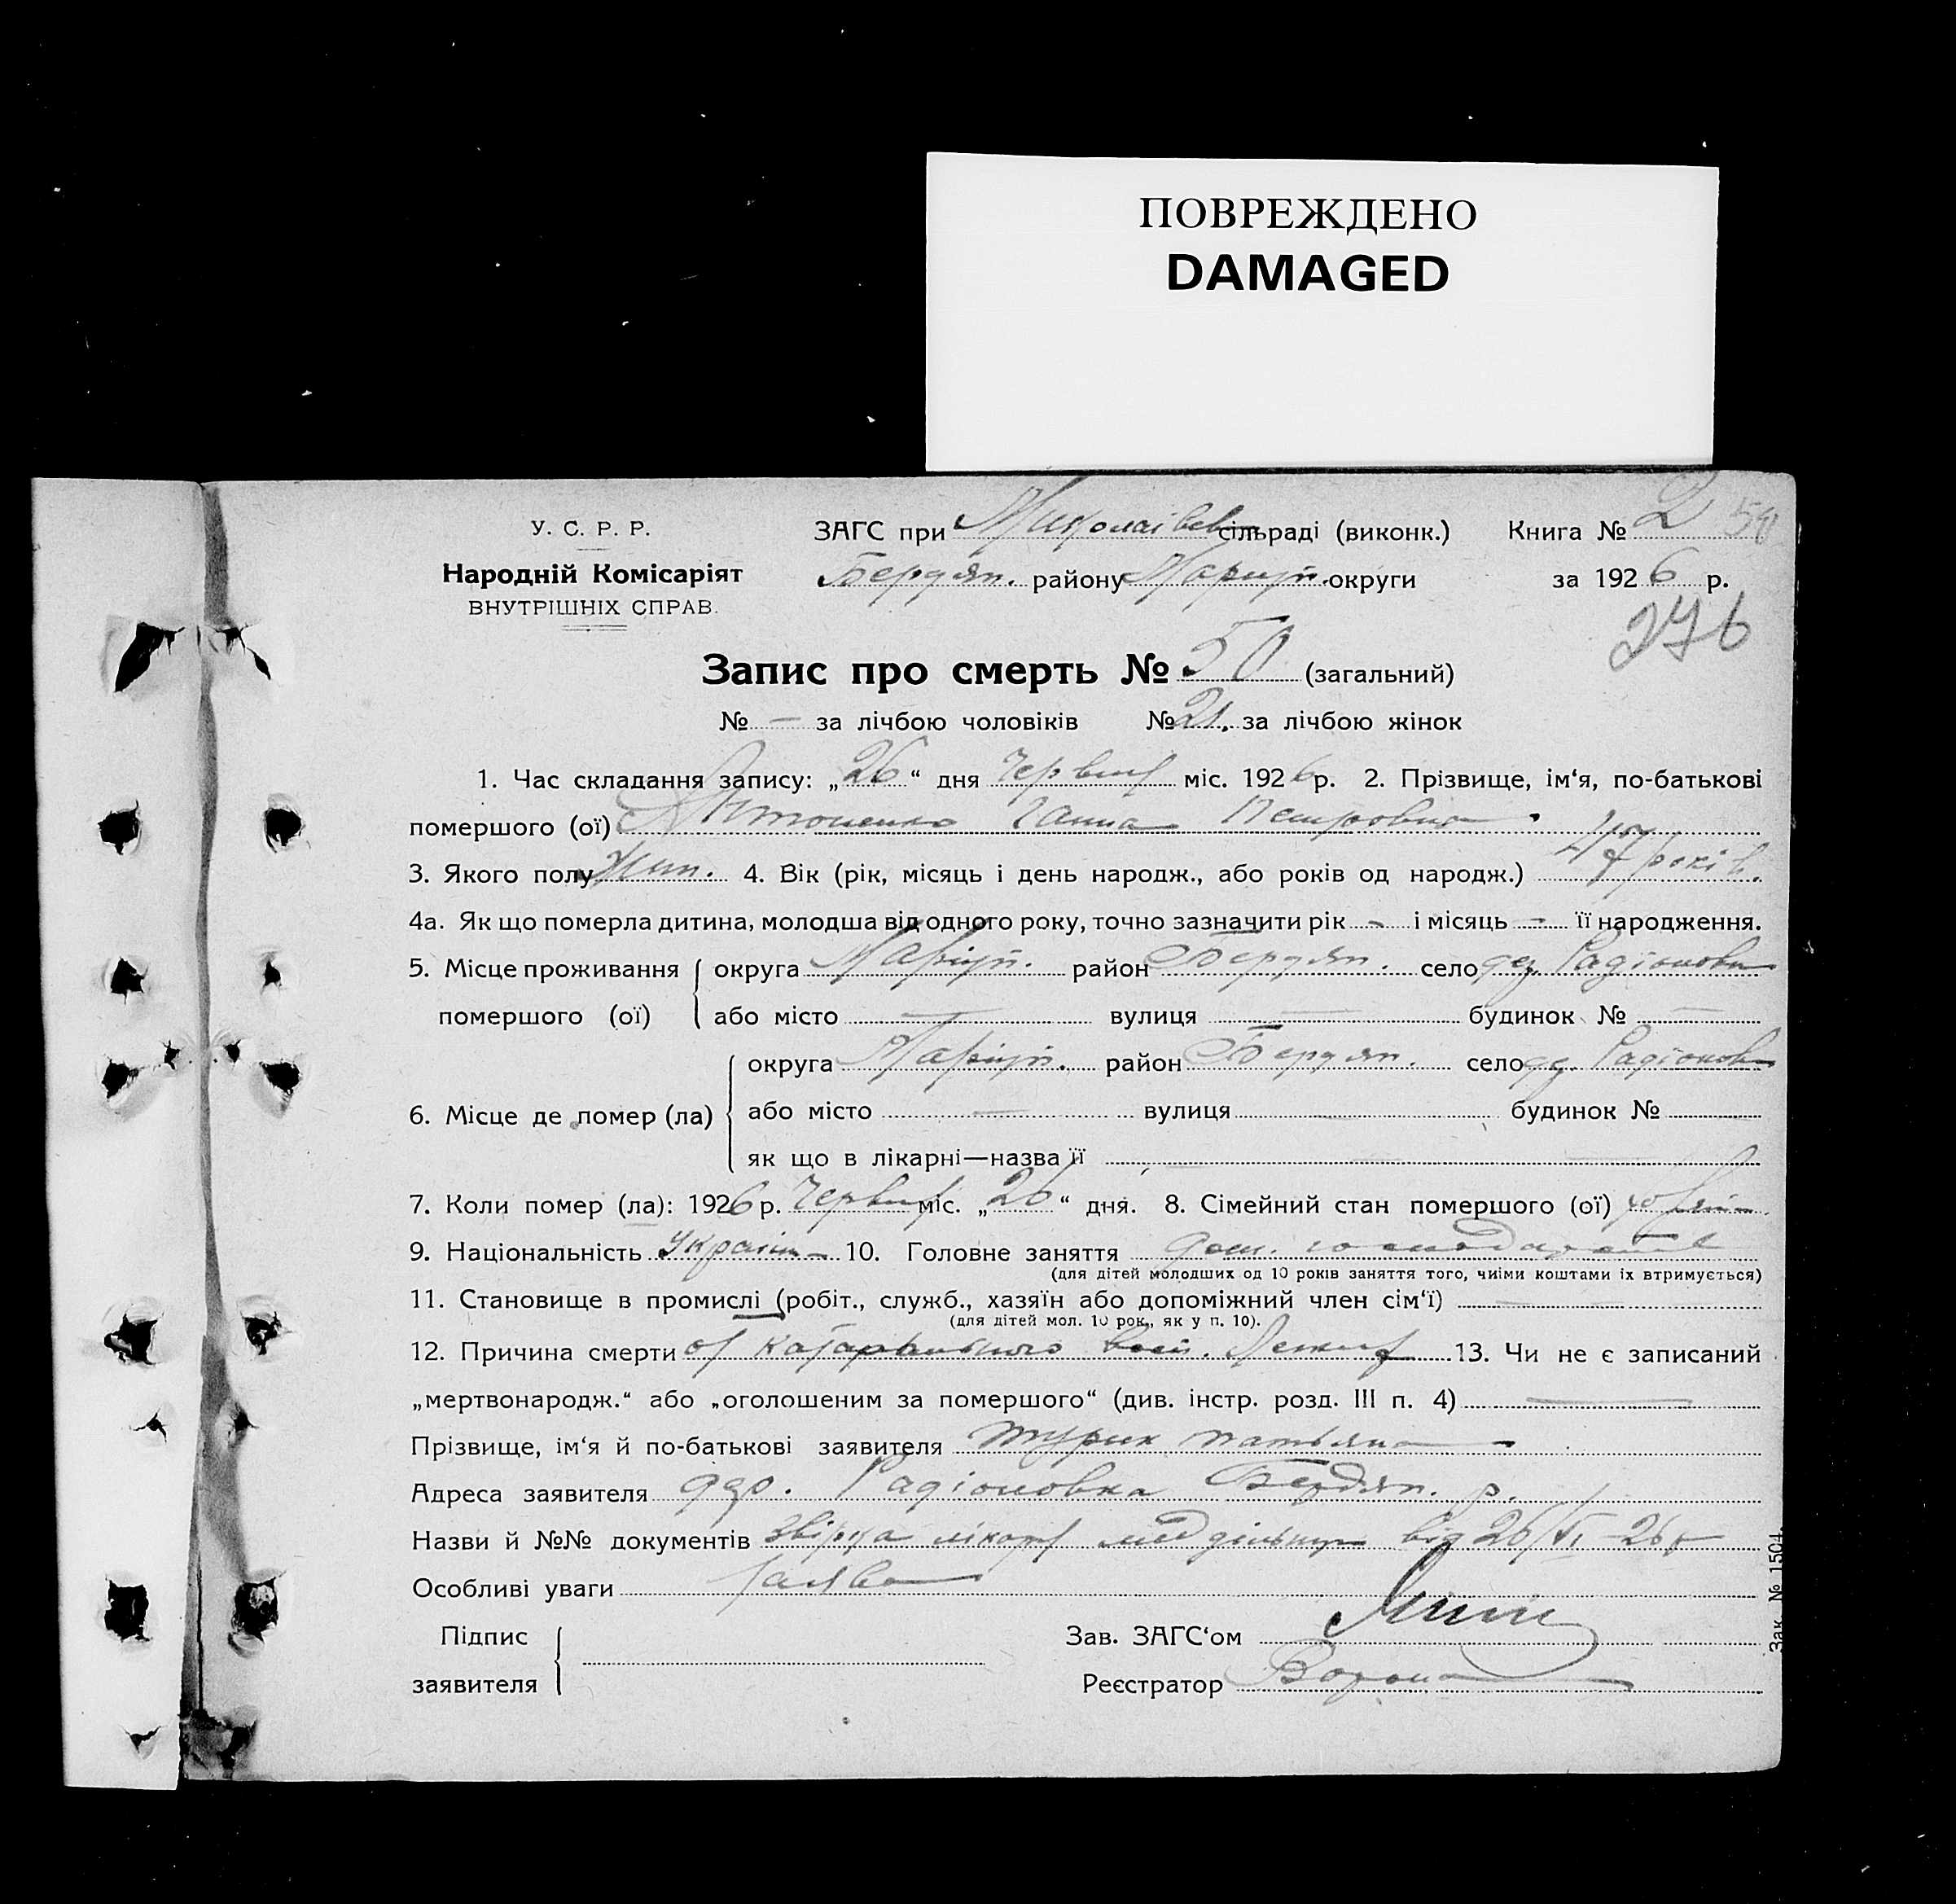 ПОВРЕЖДЕНО
DAMAGED
У. С. Р. Р. ЗАГС при Миколаївс сільраді (виконк.) Книга № 2 50
Народній Комісаріят Бердян. району Маріуп. округи за 1926 р.
ВНУТРІШНІХ СПРАВ. 276
Запис про смерть № 50 (загальний)
№ — за лічбою чоловіків № 21. за лічбою жінок
1. Час складання запису: „26“ дня червня міс. 1926 р. 2. Прізвище, ім‘я, по-батькові
помершого (ої) Антоненко Ганна Петровна
3. Якого полу жін. 4. Вік (рік, місяць і день народж., або років од народж.) 47 років.
4а. Як що померла дитина, молодша від одного року, точно зазначити рік — і місяць — її народження.
5. Місце проживання округа Маріуп. район Бердян. село Радіоновка
помершого (ої) або місто — вулиця — будинок № —
округа Маріуп. район Бердян. село Радіоновк
6. Місце де помер (ла) або місто — вулиця — будинок №
як що в лікарні—назва її —
7. Коли помер (ла): 1926 р. червня міс. „26“ дня. 8. Сімейний стан помершого (ої)
9. Національність Україн 10. Головне заняття дом. господарство
(для дітей молодших од 10 років заняття того, чиїми коштами їх втримується)
11. Становище в промислі (робіт., служб., хазяїн або допоміжний член сім‘ї) —
(для дітей мол. 10 рок., як у п. 10).
12. Причина смерти от катарального восп. 13. Чи не є записаний
„мертвонародж.“ або „оголошеним за помершого“ (див. інстр. розд. III п. 4) —
Прізвище, ім‘я й по-батькові заявителя Турик Татьяна
Адреса заявителя дер. Радіоновка Бердян. р.
Назви й №№ документів лікаря мед від 26/VI-26 р
Особливі уваги
Підпис Зав. ЗАГС‘ом
заявителя Реєстратор Ворона
Зак. № 1504.